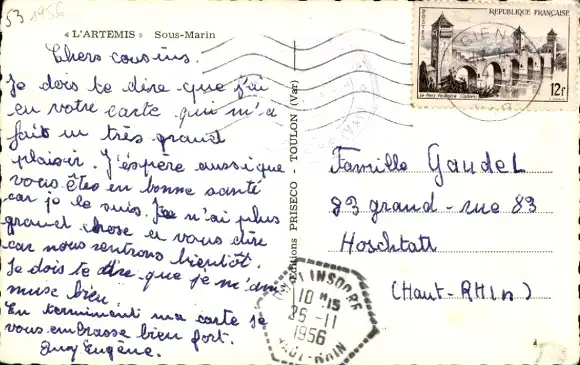 53 1956
« L'ARTEMIS » Sous-Marin
Chers cousins.
Je dois te dire que j'ai
eu votre carte qui m'a
fait un très grand
plaisir. J'éspère aussi que
vous êtes en bonne santé
car je le suis. Je n'ai plus
grand chose a vous dire
car nous rentrons bientôt.
Je dois te dire que je m'a
muse bien
En terminent ma carte je
vous embrasse bien fort.
Eugène.
Editions PRISECO - TOULON (Var)
REPUBLIQUE FRANÇAISE
12f
Famille Gaudel
83 grand-rue 83
Hoschtatt
(Haut-RHin)
INSDORF
10 H15
25-11
1956
HAUT-RHIN